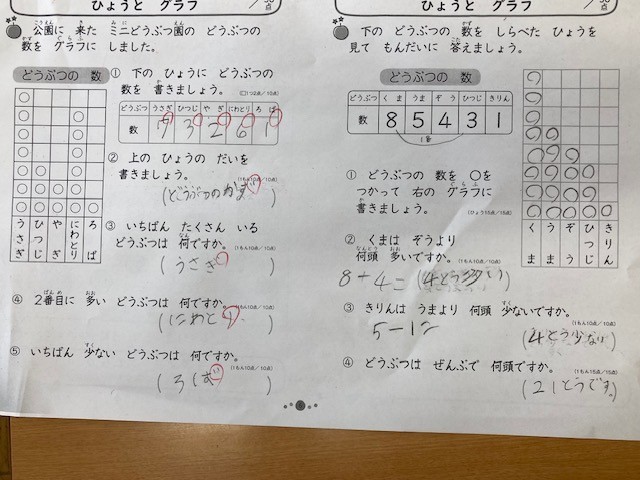 ひょうと グラフ
点
公園に 来た ミニどうぶつ園の どうぶつの
数を グラフに しました。
どうぶつの 数
うさぎ ひつじ やぎ にわとり ろば
① 下の ひょうに どうぶつの
数を 書きましょう。
どうぶつ うさぎ ひつじ やぎ にわとり ろば
数 7 3 2 6 1
② 上の ひょうの だいを
書きましょう。
(どうぶつのかず)
③ いちばん たくさん いる
どうぶつは 何ですか。
(うさぎ)
④ 2番目に 多い どうぶつは 何ですか。
(にわとり)
⑤ いちばん 少ない どうぶつは 何ですか。
(ろば)
ひょうと グラフ
点
下の どうぶつの 数を しらべた ひょうを
見て もんだいに 答えましょう。
どうぶつの 数
どうぶつ くま うま ぞう ひつじ きりん
数 8 5 4 3 1
くま うま ぞう ひつじ きりん
① どうぶつの 数を ○を
つかって 右の グラフに
書きましょう。
② くまは ぞうより
何頭 多いですか。
8+4= (4とう多い)
③ きりんは うまより 何頭 少ないですか。
5-1= (4とう少ない)
④ どうぶつは ぜんぶで 何頭ですか。
(21とうです。)